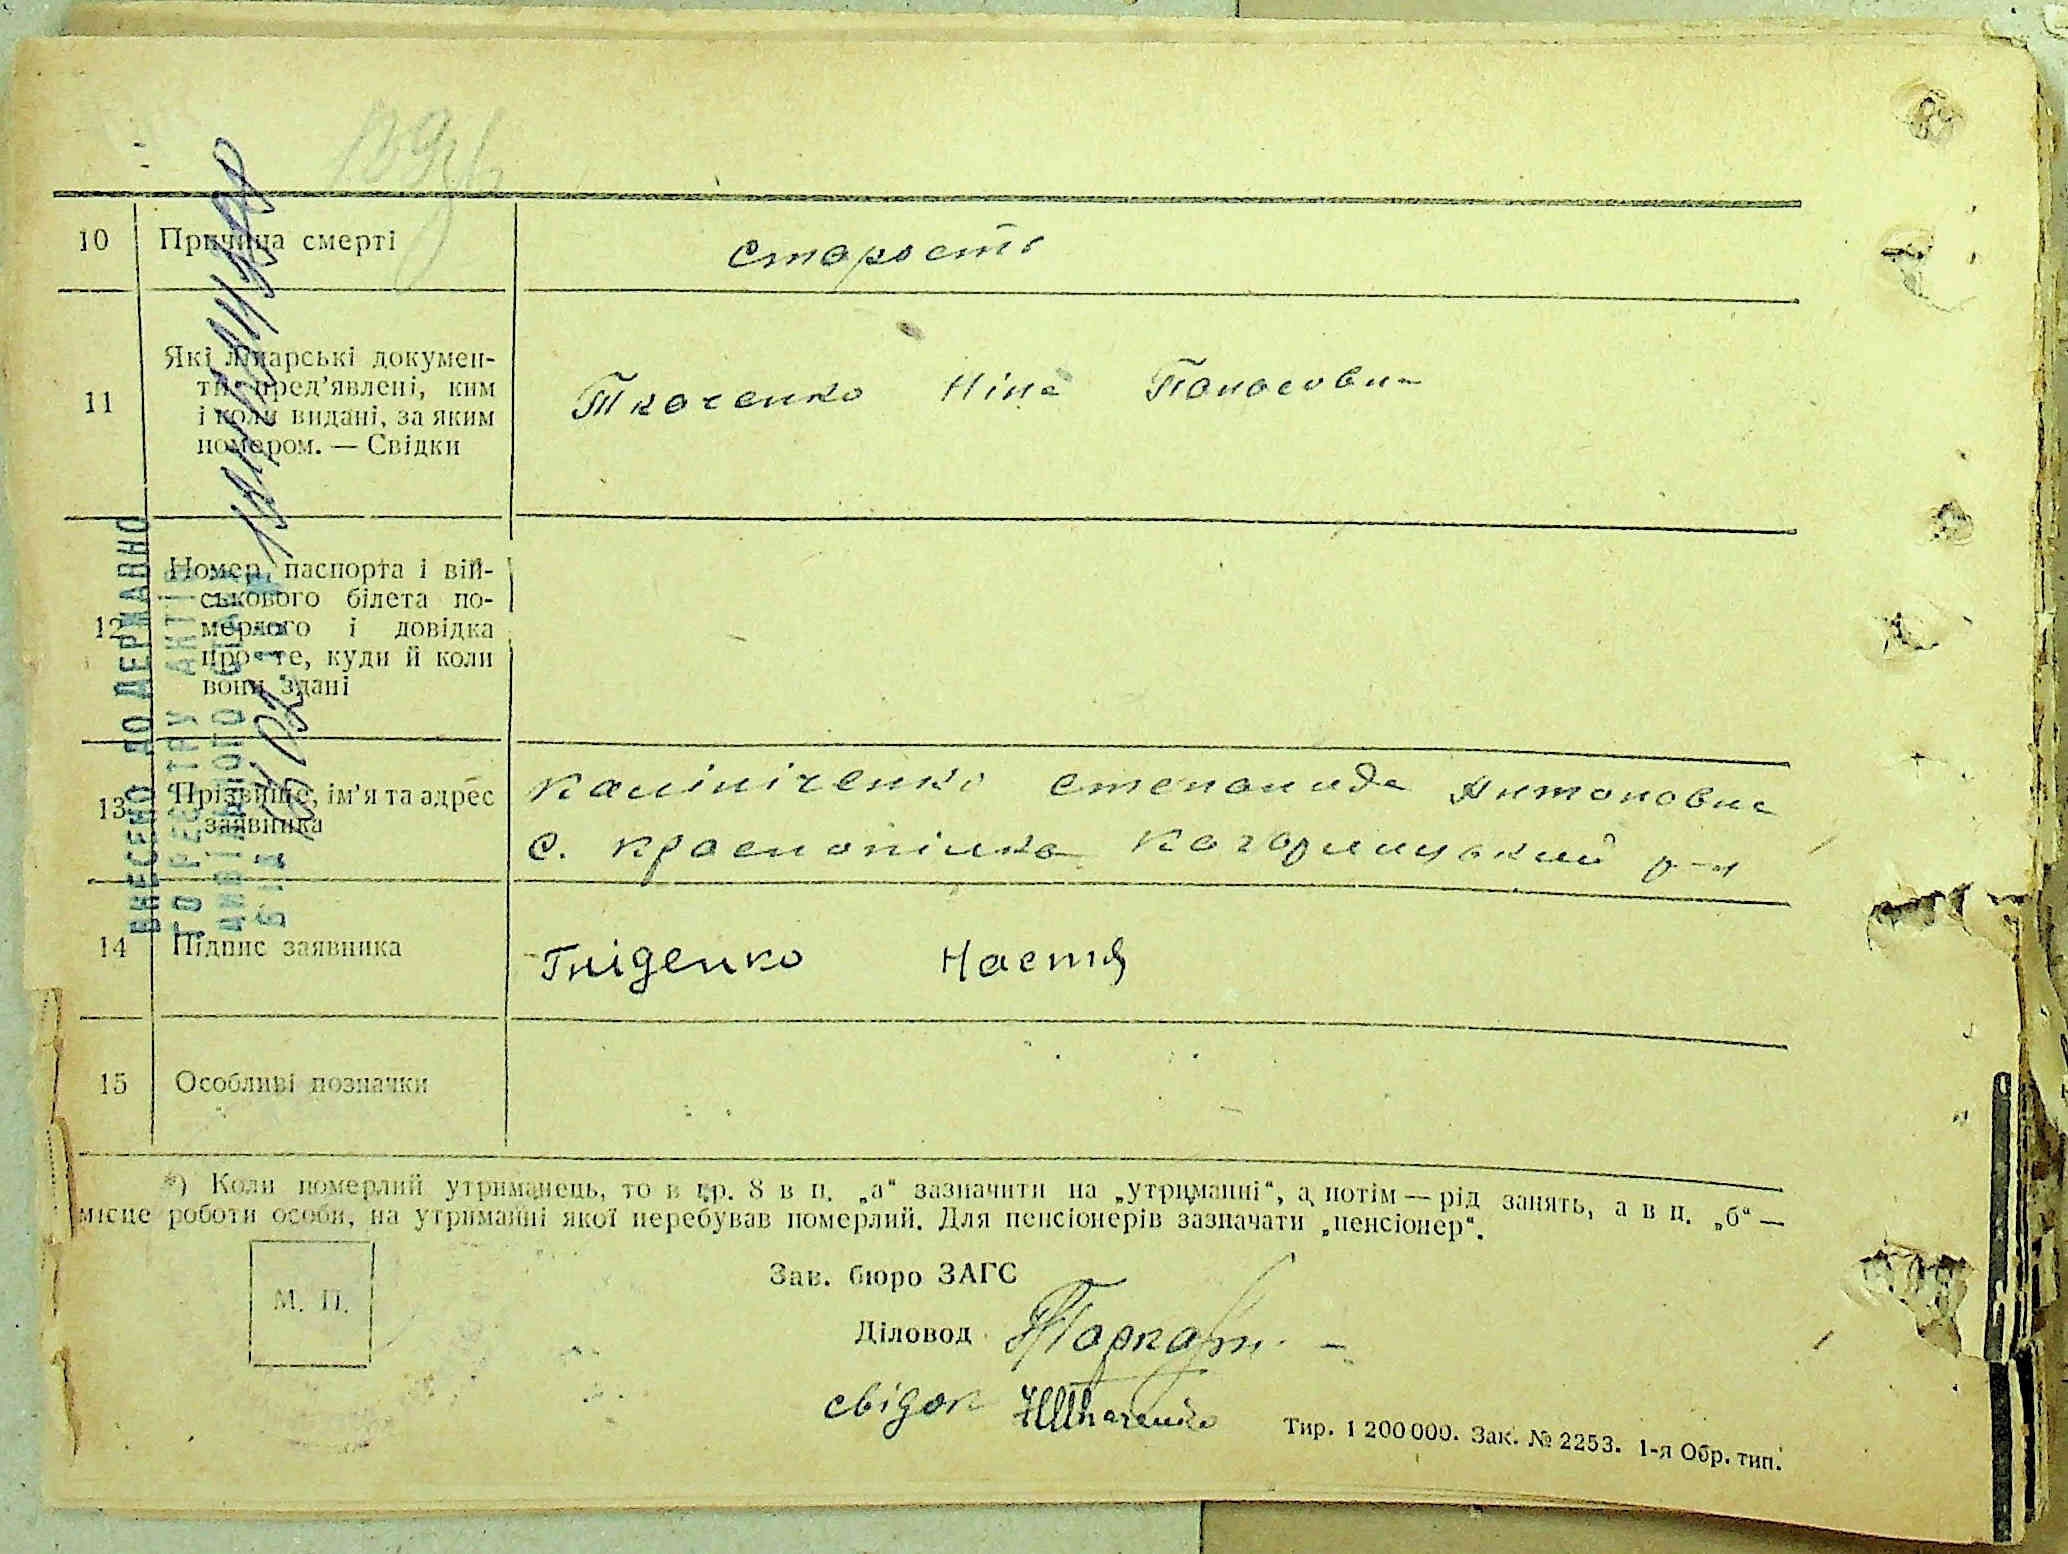 10 Причина смерті старость
11 Які лікарські докумен-
ти пред’явлені, ким
і коли видані, за яким
номером. — Свідки
Ткаченко Ніна Панасовн
12 Номер паспорта і вій-
ськового білета по-
мерлого і довідка
про те, куди й коли
вони здані
13 Прізвище, ім’я та адрес
заявника
Калініченко Степанида Антоновна
с. Краснопілка р-н
14 Підпис заявника Гніденко Настя
15 Особливі позначки
*) Коли померлий утриманець, то в гр. 8 в п. „а“ зазначити на „утриманні“, а потім — рід занять, а в п. „б“ —
місце роботи особи, на утриманні якої перебував померлий. Для пенсіонерів зазначати „пенсіонер“.
М. П.
Зав. бюро ЗАГС
Діловод
свідок НТкаченко
Тир. 1 200 000. Зак. № 2253. 1-я Обр. тип.
ВНЕСЕНО ДО ДЕРЖАВНО
ГО РЕЄСТРУ АКТІВ
ЦИВІЛЬНОГО СТАНУ